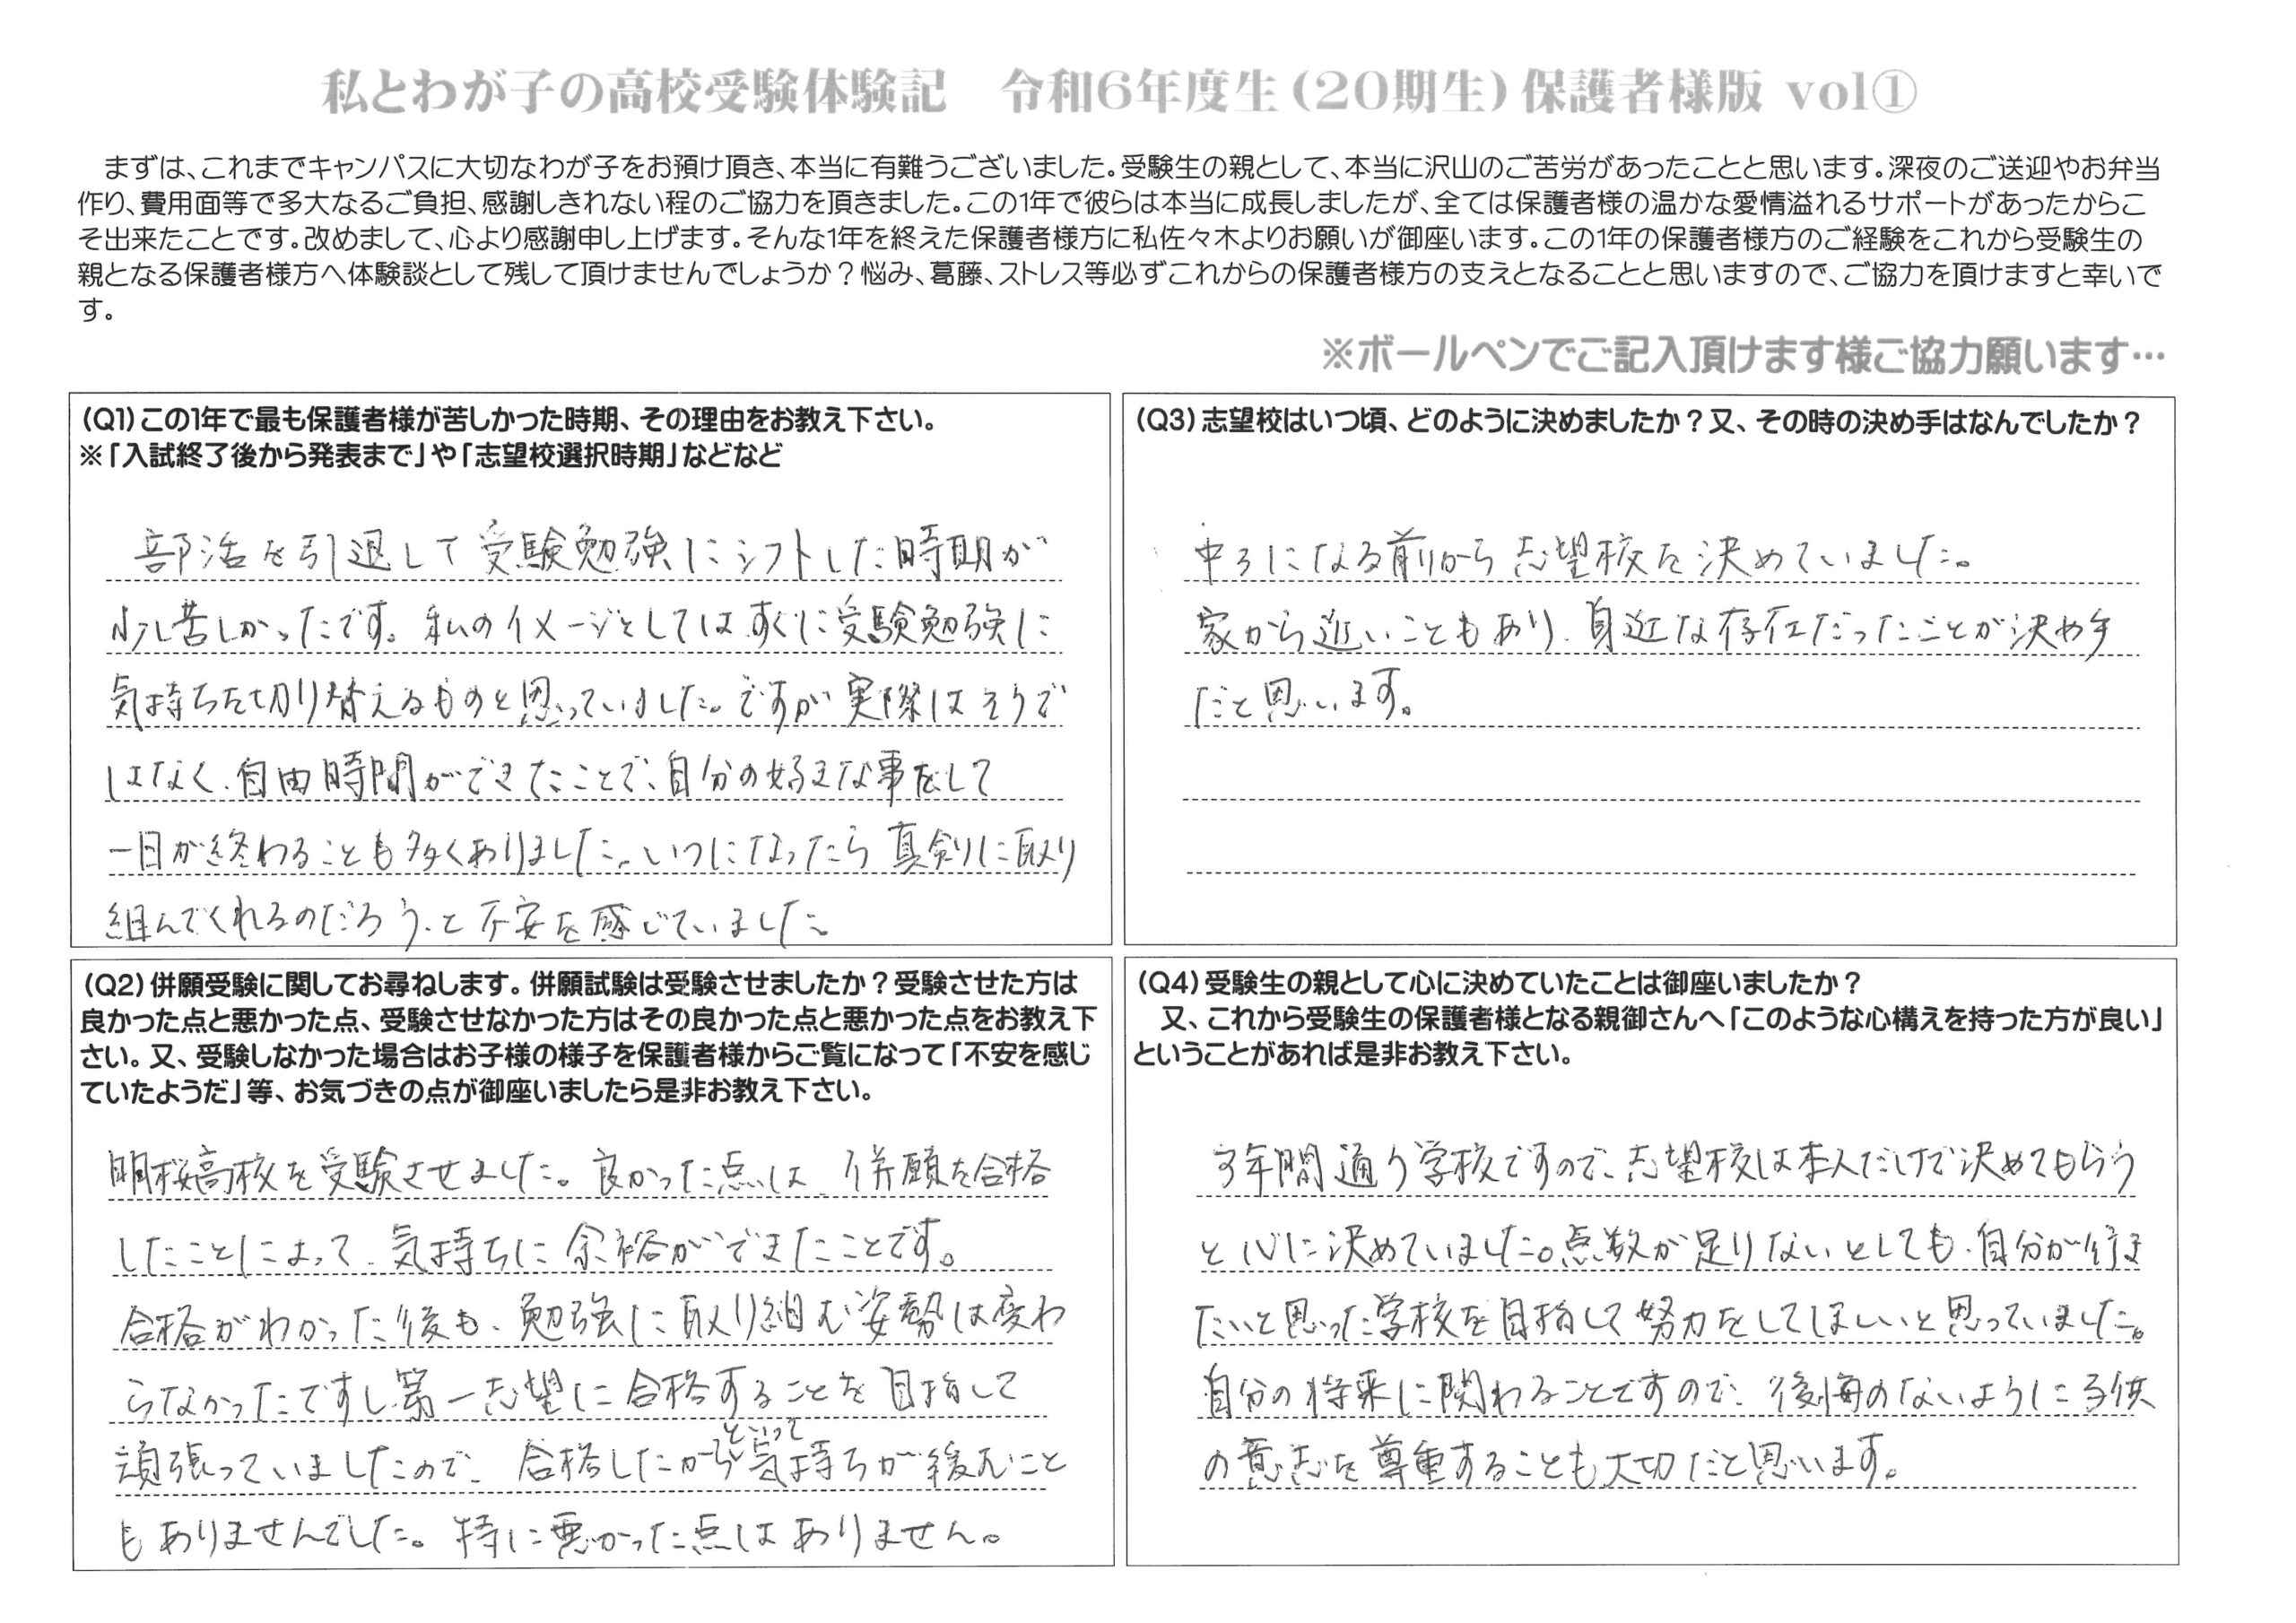 私とわが子の高校受験体験記　令和6年度生（20期生）保護者様版 vol①
まずは、これまでキャンパスに大切なわが子をお預け頂き、本当に有難うございました。受験生の親として、本当に沢山のご苦労があったことと思います。深夜のご送迎やお弁当
作り、費用面等で多大なるご負担、感謝しきれない程のご協力を頂きました。この1年で彼らは本当に成長しましたが、全ては保護者様の温かな愛情溢れるサポートがあったからこ
そ出来たことです。改めまして、心より感謝申し上げます。そんな1年を終えた保護者様方に私佐々木よりお願いが御座います。この1年の保護者様方のご経験をこれから受験生の
親となる保護者様方へ体験談として残して頂けませんでしょうか？悩み、葛藤、ストレス等必ずこれからの保護者様方の支えとなることと思いますので、ご協力を頂けますと幸いで
す。
※ボールペンでご記入頂けます様ご協力願います…
（Q1）この1年で最も保護者様が苦しかった時期、その理由をお教え下さい。
※「入試終了後から発表まで」や「志望校選択時期」などなど
部活を引退して受験勉強にシフトした時期が
少し苦しかったです。私のイメージとしてはすぐに受験勉強に
気持ちを切り替えるものと思っていました。ですが実際はそうで
はなく、自由時間ができたことで、自分の好きな事をして
一日が終わることも多くありました。いつになったら真剣に取り
組んでくれるのだろう、と不安を感じていました。
（Q2）併願受験に関してお尋ねします。併願試験は受験させましたか？受験させた方は
良かった点と悪かった点、受験させなかった方はその良かった点と悪かった点をお教え下
さい。又、受験しなかった場合はお子様の様子を保護者様からご覧になって「不安を感じ
ていたようだ」等、お気づきの点が御座いましたら是非お教え下さい。
明桜高校を受験させました。良かった点は、併願を合格
したことによって、気持ちに余裕ができたことです。
合格がわかった後も、勉強に取り組む姿勢は変わ
らなかったですし、第一志望に合格することを目指して
頑張っていましたので、合格したからといって気持ちが緩むこと
もありませんでした。特に悪かった点はありません。
（Q3）志望校はいつ頃、どのように決めましたか？又、その時の決め手はなんでしたか？
中3になる前から志望校を決めていました。
家から近いこともあり、身近な存在だったことが決め手
だと思います。
（Q4）受験生の親として心に決めていたことは御座いましたか？
又、これから受験生の保護者様となる親御さんへ「このような心構えを持った方が良い」
ということがあれば是非お教え下さい。
3年間通う学校ですので、志望校は本人だけで決めてもらう
と心に決めていました。点数が足りないとしても、自分が行き
たいと思った学校を目指して努力をしてほしいと思っていました。
自分の将来に関わることですので、後悔のないように子供
の意志を尊重することも大切だと思います。